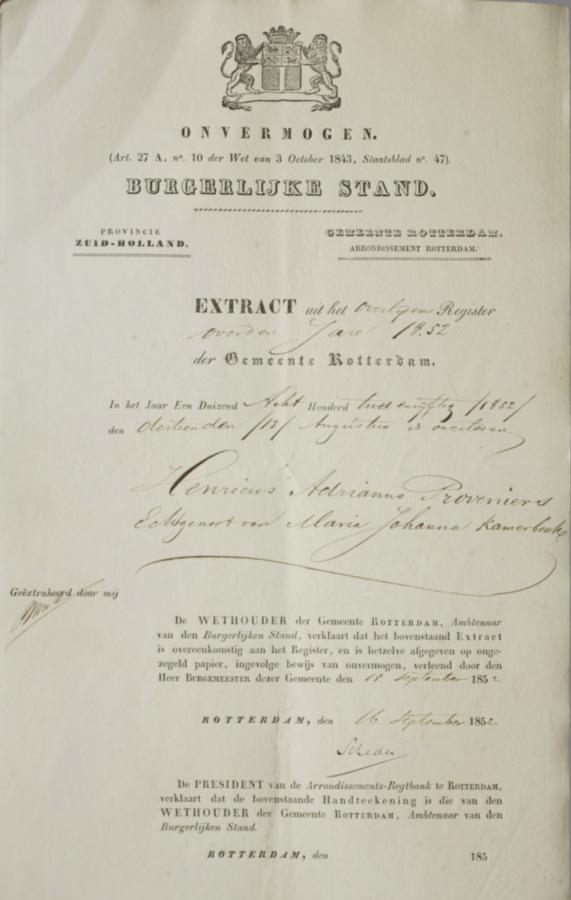 ONVERMOGEN.
(Art. 27 A, nº. 10 der Wet van 3 October 1843, Staatsblad nº. 47).
BURGERLIJKE STAND.
PROVINCIE
ZUID-HOLLAND.
GEMEENTE ROTTERDAM.
ARRONDISSEMENT ROTTERDAM.
EXTRACT uit het overlijdens Register
over den Jare 1852
der Gemeente Rotterdam.
In het Jaar Een Duizend Acht Honderd twee en vijftig /1852/
den dertienden /13/ Augustus is overleden
Henricus Adrianus Proveniers
Echtgenoot van Maria Johanna Kamerbeek
Geëxtraheerd door mij
De WETHOUDER der Gemeente ROTTERDAM, Ambtenaar
van den Burgerlijken Stand, verklaart dat het bovenstaand Extract
is overeenkomstig aan het Register, en is hetzelve afgegeven op onge-
zegeld papier, ingevolge bewijs van onvermogen, verleend door den
Heer BURGEMEESTER dezer Gemeente den September 1852
ROTTERDAM, den 16 September 1852.
De PRESIDENT van de Arrondissements-Regtbank te ROTTERDAM,
verklaart dat de bovenstaande Handteekening is die van den
WETHOUDER der Gemeente ROTTERDAM, Ambtenaar van den
Burgerlijken Stand.
ROTTERDAM, den 185